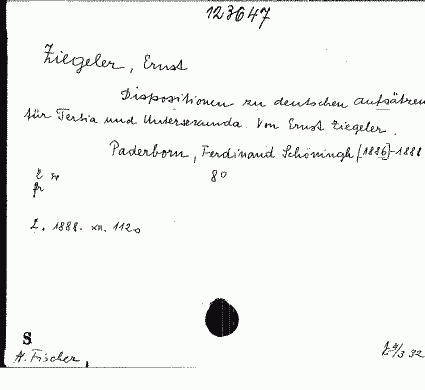 123647
Ziegeler, Ernst
Dispositionen zu deutschen Aufsätzen
für Tertia und Untersekunda. Von Ernst Ziegeler.
Paderborn, Ferdinand Schöningh [1886]-1888
8°
2. 1888. XII. 112 S
S
A. Fischer